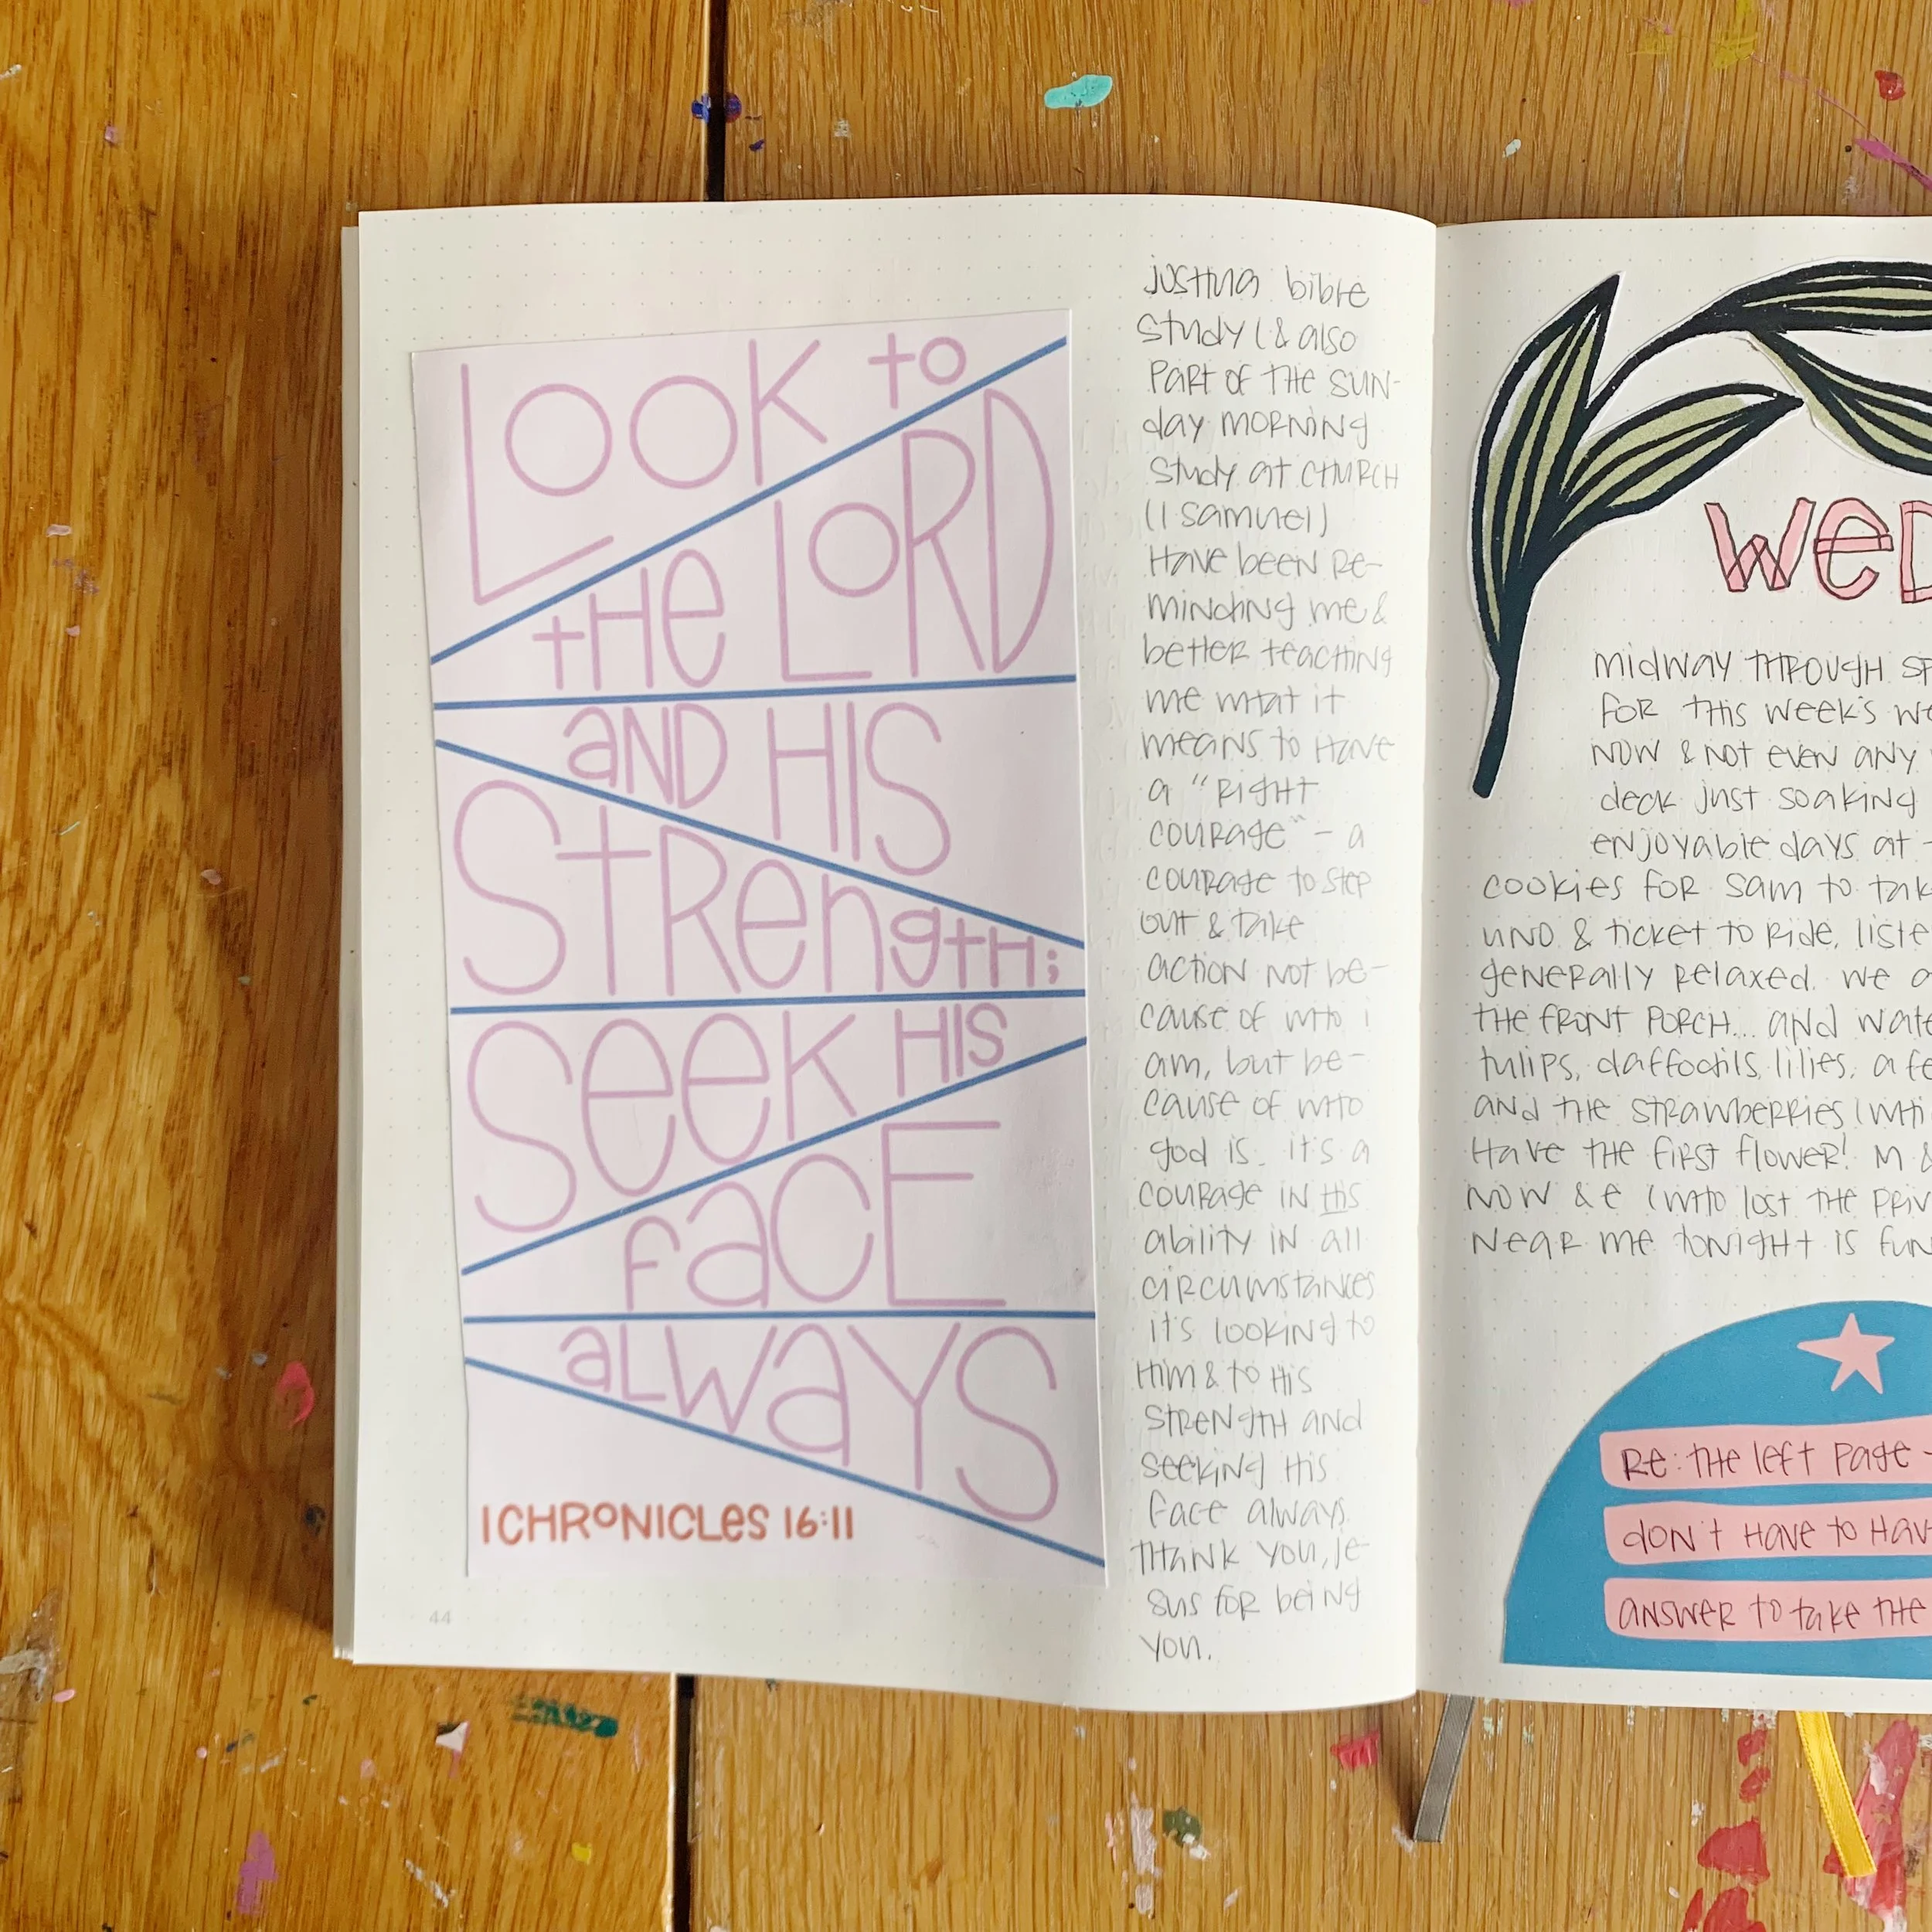 LOOK to
tHe LORD
aND HIS
StRength;
Seek HIS
faCE
aLWaYS
1 CHRONICLES 16:11
44
bible
study (& also
part of the sun-
day morning
study at church
(1 samuel)
have been re-
minding me &
better teaching
me what it
means to have
a "right
courage" - a
courage to step
out & take
action not be-
cause of who i
am, but be-
cause of who
god is. it's a
courage in his
ability in all
circumstances
it's looking to
him & to his
strength and
seeking his
face always.
thank you, je-
sus for being
you.
WED
midway through
for this week's
now & not even any
deck just soaking
enjoyable days at
cookies for sam to
uno & ticket to ride,
generally relaxed. we
the front porch... and
tulips, daffodils, lilies, a
and the strawberries (
have the first flower! M &
now & e (who lost the
near me tonight is
Re: the left page -
don't have to
answer to take the